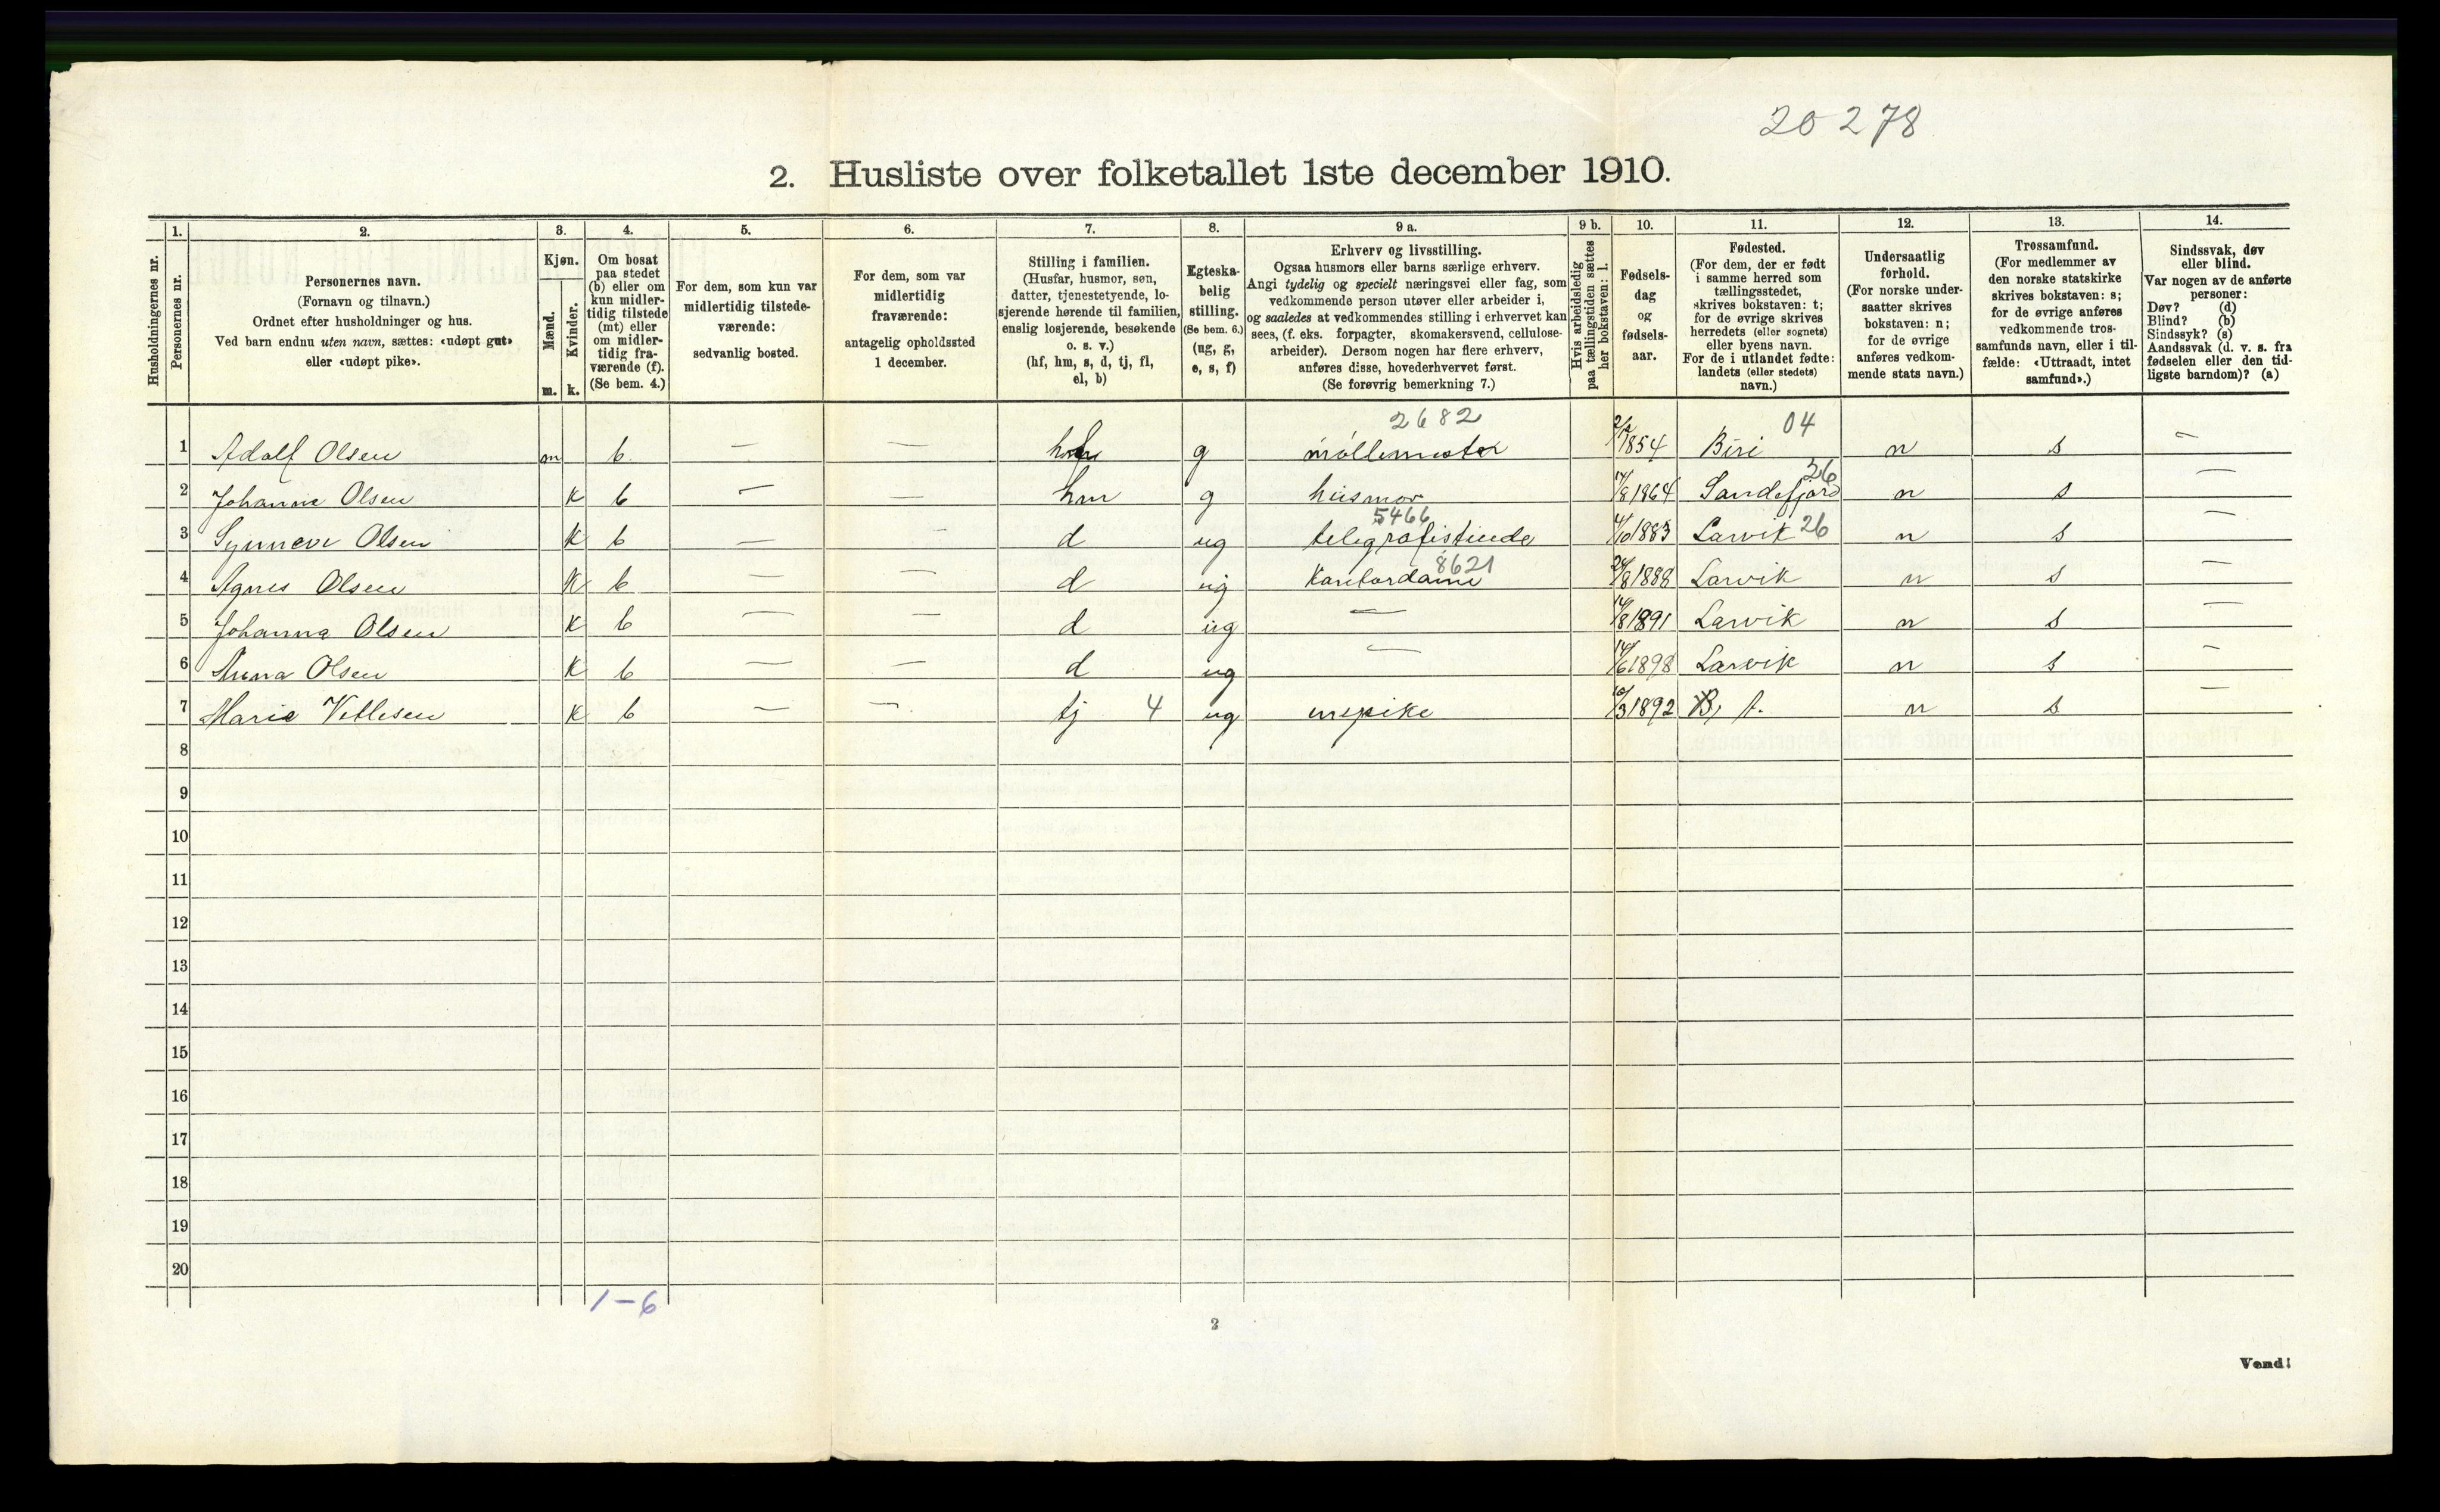 20 278
2. Husliste over folketallet 1ste december 1910.
Husholdningernes nr.
1. Personernes nr.
2. Personernes navn.
(Fornavn og tilnavn.)
Ordnet efter husholdninger og hus.
Ved barn endnu uten navn, sættes: «udøpt gut»
eller «udøpt pike».
3. Kjøn.
Mænd. m.
Kvinder. k.
4. Om bosat
paa stedet
(b) eller om
kun midler-
tidig tilstede
(mt) eller
om midler-
tidig fra-
værende (f).
(Se bem. 4.)
5. For dem, som kun var
midlertidig tilstede-
værende:
sedvanlig bosted.
6. For dem, som var
midlertidig
fraværende:
antagelig opholdssted
1 december.
7. Stilling i familien.
(Husfar, husmor, søn,
datter, tjenestetyende, lo-
sjerende hørende til familien,
enslig losjerende, besøkende
o. s. v.)
(hf, hm, s, d, tj, fl,
el, b)
8. Egteska-
belig
stilling.
(Se bem. 6.)
(ug, g,
e, s, f)
9 a. Erhverv og livsstilling.
Ogsaa husmors eller barns særlige erhverv.
Angi tydelig og specielt næringsvei eller fag, som
vedkommende person utøver eller arbeider i,
og saaledes at vedkommendes stilling i erhvervet kan
sees, (f. eks. forpagter, skomakersvend, cellulose-
arbeider). Dersom nogen har flere erhverv,
anføres disse, hovederhvervet først.
(Se forøvrig bemerkning 7.)
9 b. Hvis arbeidsledig
paa tællingstiden sættes
her bokstaven: l.
10. Fødsels-
dag
og
fødsels-
aar.
11. Fødested.
(For dem, der er født
i samme herred som
tællingsstedet,
skrives bokstaven: t;
for de øvrige skrives
herredets (eller sognets)
eller byens navn.
For de i utlandet fødte:
landets (eller stedets)
navn.)
12. Undersaatlig
forhold.
(For norske under-
saatter skrives
bokstaven: n;
for de øvrige
anføres vedkom-
mende stats navn.)
13. Trossamfund.
(For medlemmer av
den norske statskirke
skrives bokstaven: s;
for de øvrige anføres
vedkommende tros-
samfunds navn, eller i til-
fælde: «Uttraadt, intet
samfund».)
14. Sindssvak, døv
eller blind.
Var nogen av de anførte
personer:
Døv? (d)
Blind? (b)
Sindssyk? (s)
Aandssvak (d. v. s. fra
fødselen eller den tid-
ligste barndom)? (a)
2682 04
1 Adolf Olsen m b — — hf g møllemester 1854 Biri n s —
26
2 Johanne Olsen k b — — hm g husmor 14/8 1864 Sandefjord n s —
5466
3 Synnøve Olsen k b — — d ug telegrafistinde 4/10 1883 Larvik 26 n s —
8621
4 Agnes Olsen k b — — d ug Kontordame 24/8 1888 Larvik n s —
5 Johanna Olsen k b — — d ug — 14/8 1891 Larvik n s —
6 Anna Olsen k b — — d ug — 14/6 1898 Larvik n s —
7 Marie Vetlesen k b — — tj 4 ug enepike 10/3 1892 t. n s —
8
9
10
11
12
13
14
15
16
17
18
19
20
1-6
2
Vend!